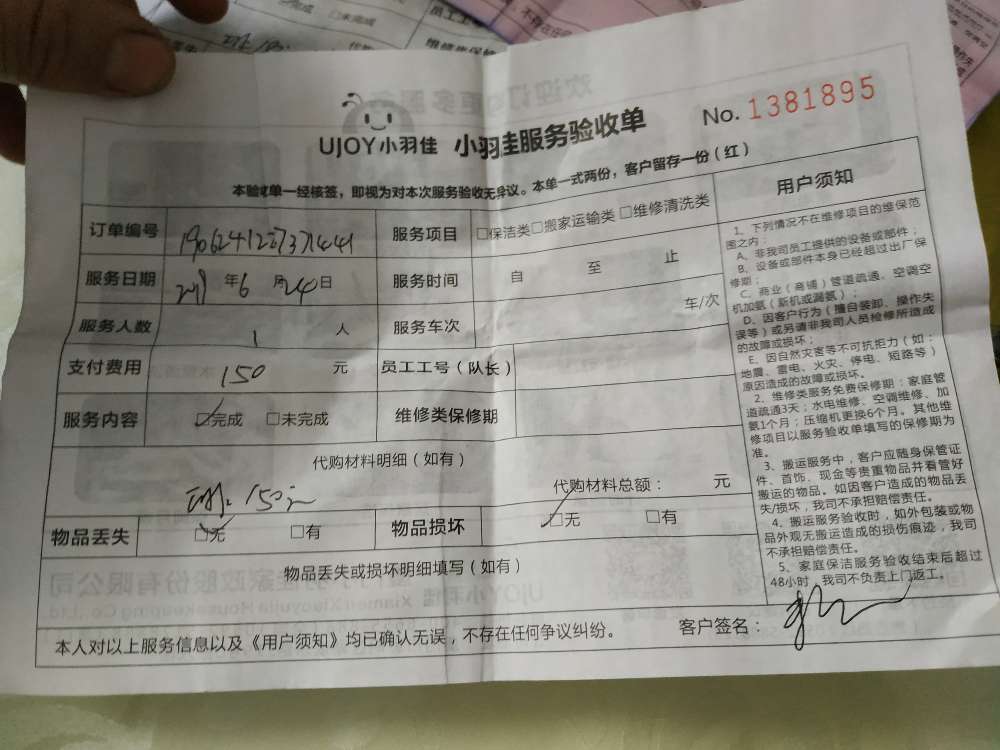 完成 □未完成
员工工
维修类保修
UJOY小羽佳 小羽佳服务验收单
No. 1381895
本验收单一经核签，即视为对本次服务验收无异议。本单一式两份，客户留存一份（红）
订单编号
服务项目 □保洁类□搬家运输类 □维修清洗类
服务日期 年 6 月 24 日
服务时间 自 至 止
服务人数 1 人
服务车次 车/次
支付费用 150 元
员工工号（队长）
服务内容 ☑完成 □未完成
维修类保修期
代购材料明细（如有）
150元
代购材料总额： 元
物品丢失 ☑无 □有
物品损坏 ☑无 □有
物品丢失或损坏明细填写（如有）
本人对以上服务信息以及《用户须知》均已确认无误，不存在任何争议纠纷。
客户签名：
用户须知
1、下列情况不在维修项目的维保范
围之内：
A、非我司员工提供的设备或部件；
B、设备或部件本身已经超过出厂保
修期；
C、商业（商铺）管道疏通、空调空
机加氨（新机或漏氨）；
D、因客户行为（擅自装卸、操作失
误等）或另请非我司人员检修所造成
的故障或损坏；
E、因自然灾害等不可抗拒力（如：
地震、雷电、火灾、停电、短路等）
原因造成的故障或损坏。
2、维修类服务免费保修期：家庭管
道疏通3天；水电维修、空调维修、加
氨1个月；压缩机更换6个月。其他维
修项目以服务验收单填写的保修期为
准。
3、搬运服务中，客户应随身保管证
件、首饰、现金等贵重物品并看管好
搬运的物品。如因客户造成的物品丢
失/损坏，我司不承担赔偿责任。
4、搬运服务验收时，如外包装或物
品外观无搬运造成的损伤痕迹，我司
不承担赔偿责任。
5、家庭保洁服务验收结束后超过
48小时，我司不负责上门返工。